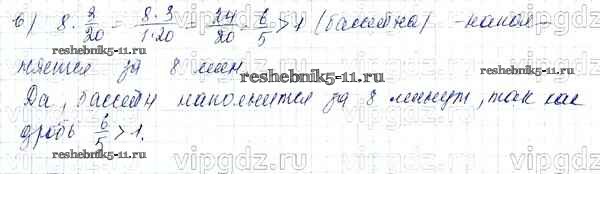 в) 8 · 3/20 = 8·3/1·20 = 24/20 = 6/5 > 1 (бассейна) - напол-
няется за 8 мин
reshebnik5-11.ru
reshebnik5-11.ru
Да, бассейн наполнится за 8 минут, так как
дробь 6/5 > 1.
reshebnik5-11.ru
vipgdz.ru
vipgdz.ru
vipgdz.ru